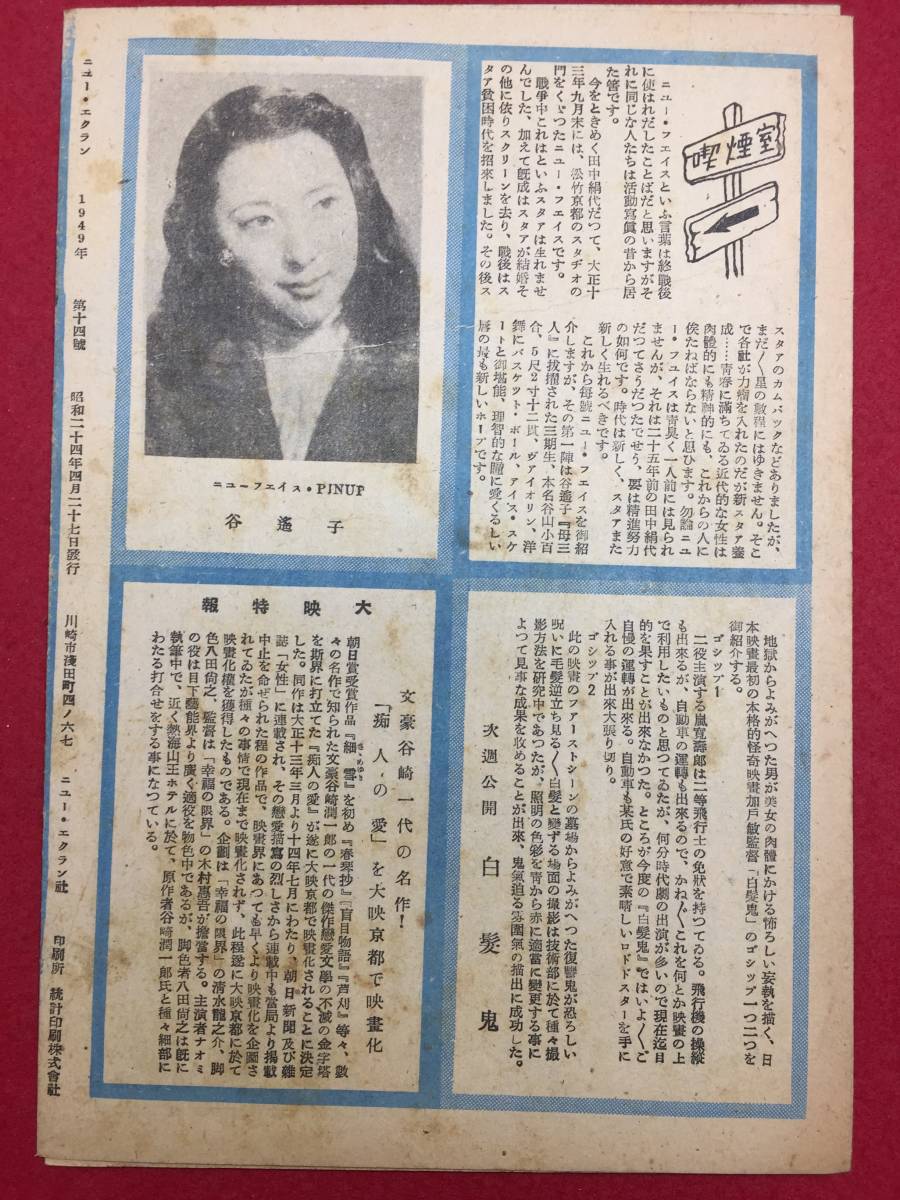 喫煙室
ニュー・フェイスといふ言葉は終戰後
に使はれだしたことばだと思いますがそ
れに同じな人たちは活動寫眞の昔から居
た筈です。
今をときめく田中絹代だつて、大正十
三年九月末には、松竹京都のスタヂオの
門をくゞつたニュー・フェイスです。
戰爭中これはといふスタアは生れませ
んでした、加えて旣成はスタアが結婚そ
の他に依りスクリーンを去り、戰後はス
タア貧困時代を招來しました。その後ス
スタアのカムバックなどありましたが、
まだ〱星の數程にはゆきません。そこ
で各社が力瘤を入れたのだが新スタア養
成……靑春に滿ちてゐる近代的な女性は
肉體的にも精神的にも、これからの人に
俟たねばならないと思ひます。勿論ニュ
ー・フェイスは靑臭く一人前には見られ
ませんが、それは二十五年前の田中絹代
だつてさうだつたでせう、要は精進努力
の如何です。時代は新しく、スタアまた
新しく生れるべきです。
これから每號ニュー・フェイスを御紹
介しますが、その第一陣は谷遙子『母三
人』に拔擢された三期生、本名谷山小百
合、5尺2寸十二貫、ヴァイオリン、洋
舞にバスケット・ボール、アイス・スケ
ートと御堪能、理智的な瞳に愛くるしい
唇の最も新しいホープです。
ニューフェイス・PINUP
谷遙子
地獄からよみがへつた男が美女の肉體にかける怖ろしい妄執を描く、日
本映畫最初の本格的怪奇映畫加戶敏監督「白髮鬼」のゴシップ一つ二つを
御紹介する。
ゴシップ1
二役主演する嵐寬壽郞は二等飛行士の免狀を持つてゐる。飛行機の操縱
も出來るが、自動車の運轉も出來るので、かね〲これを何とか映畫の上
で利用したいものと思つてゐたが、何分時代劇の出演が多いので現在迄目
的を果すことが出來なかつた。ところが今度の『白髮鬼』ではいよ〱ご
自慢の運轉が出來る。自動車も某氏の好意で素晴しいロードスターを手に
入れる事が出來大張り切り。
ゴシップ2
此の映畫のファーストシーンの墓場からよみがへつた復讐鬼が恐ろしい
呪いに毛髮逆立ち見る〱白髮と變ずる場面の撮影は技術部に於て種々撮
影方法を硏究中であつたが、照明の色彩を靑から赤に適當に變更する事に
よつて見事な成果を收めることが出來、鬼氣迫る雰圍氣の描出に成功した。
次週公開 白髮鬼
大映特報
文豪谷崎一代の名作！
「痴人の愛」を大映京都で映畫化
朝日賞受賞作品『細雪』を初め『春琴抄』『盲目物語』『芦刈』等々、數
々の名作で知られた文豪谷崎潤一郎の一代の傑作戀愛文學の不滅の金字塔
を斯界に打立てた『痴人の愛』が遂に大映京都で映畫化されることに決定
した。同作は大正十三年三月より十四年七月にわたり、朝日新聞及び雜
誌「女性」に連載され、その戀愛描寫の烈しさから連載中も當局より揭載
中止を命ぜられた程の作品で、映畫界にあつても早くより映畫化を企圖さ
れてゐたが種々の事情で現在まで映畫化されず、此程遂に大映京都に於て
映畫化權を獲得したものである。企劃は「幸福の限界」の淸水龍之介、脚
色八田尙之、監督は「幸福の限界」の木村惠吾が擔當する。主演者ナオミ
の役は目下藝能界より廣く適役を物色中であるが、脚色者八田尙之は旣に
執筆中で、近く熱海山王ホテルに於て、原作者谷崎潤一郎氏と種々細部に
わたる打合せをする事になつている。
ニュー・エクラン 1949年 第十四號 昭和二十四年四月二十七日發行 川崎市淺田町四ノ六七 ニュー・エクラン社 印刷所 統計印刷株式會社